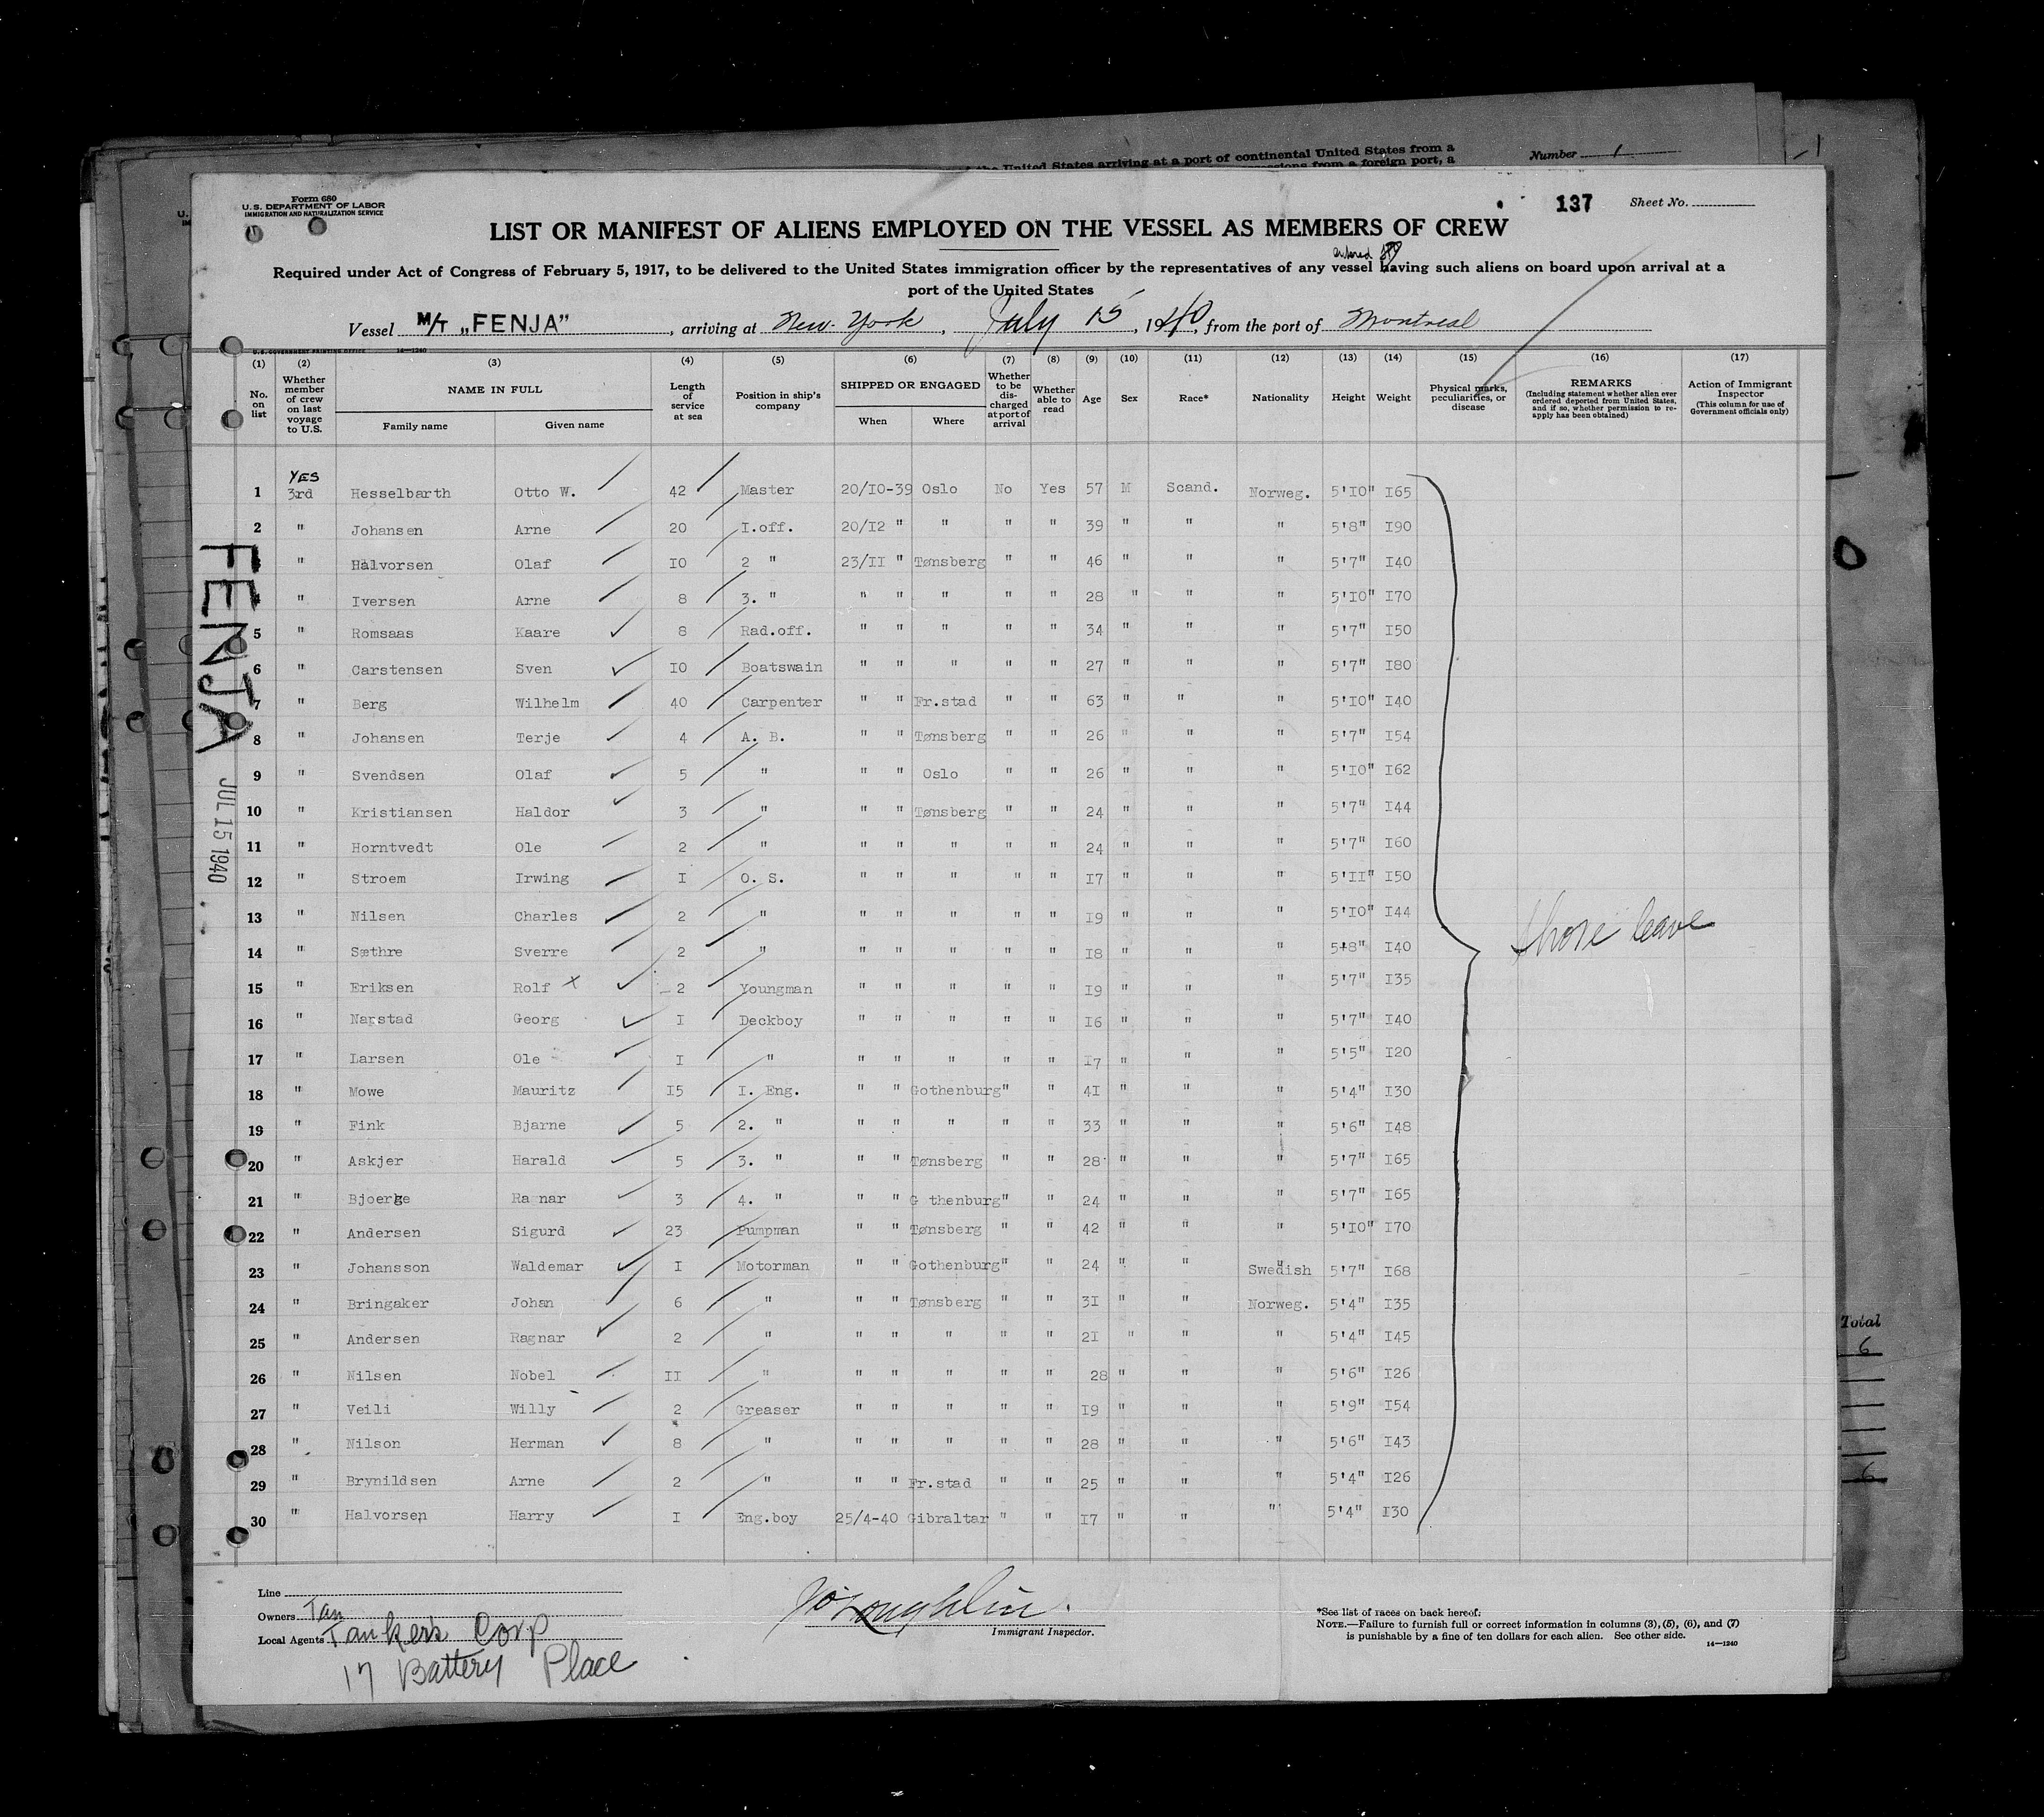 the United States arriving at a port of continental United States from a
from a foreign port, a
Number 1
Form 680
U. S. DEPARTMENT OF LABOR
IMMIGRATION AND NATURALIZATION SERVICE
137 Sheet No.
LIST OR MANIFEST OF ALIENS EMPLOYED ON THE VESSEL AS MEMBERS OF CREW
Required under Act of Congress of February 5, 1917, to be delivered to the United States immigration officer by the representatives of any vessel having such aliens on board upon arrival at a
port of the United States
Vessel M/T „FENJA" , arriving at New York , July 15 , 1940, from the port of Montreal
U. S. GOVERNMENT PRINTING OFFICE 14—1240
(1) (2) (3) (4) (5) (6) (7) (8) (9) (10) (11) (12) (13) (14) (15) (16) (17)
No. on list
Whether member of crew on last voyage to U.S.
NAME IN FULL
Family name Given name
Length of service at sea
Position in ship's company
SHIPPED OR ENGAGED
When Where
Whether to be discharged at port of arrival
Whether able to read
Age Sex Race* Nationality Height Weight
Physical marks, peculiarities, or disease
REMARKS
(Including statement whether alien ever ordered deported from United States, and if so, whether permission to reapply has been obtained)
Action of Immigrant Inspector
(This column for use of Government officials only)
YES
1 3rd Hesselbarth Otto W. 42 Master 20/10-39 Oslo No Yes 57 M Scand. Norweg. 5'10" 165
2 " Johansen Arne 20 I.off. 20/12 " " " " 39 " " " 5'8" 190
" Halvorsen Olaf 10 2 " 23/11 " Tønsberg " " 46 " " " 5'7" 140
" Iversen Arne 8 3. " " " " " " 28 " " " 5'10" 170
5 " Romsaas Kaare 8 Rad.off. " " " " " 34 " " " 5'7" 150
6 " Carstensen Sven 10 Boatswain " " " " " 27 " " " 5'7" 180
7 " Berg Wilhelm 40 Carpenter " " Fr.stad " " 63 " " " 5'10" 140
8 " Johansen Terje 4 A. B. " " Tønsberg " " 26 " " " 5'7" 154
9 " Svendsen Olaf 5 " " " Oslo " " 26 " " " 5'10" 162
10 " Kristiansen Haldor 3 " " " Tønsberg " " 24 " " " 5'7" 144
11 " Horntvedt Ole 2 " " " " " " 24 " " " 5'7" 160
12 " Stroem Irwing I O. S. " " " " " 17 " " " 5'11" 150
13 " Nilsen Charles 2 " " " " " " 19 " " " 5'10" 144
14 " Sæthre Sverre 2 " " " " " " 18 " " " 5'8" 140
15 " Eriksen Rolf x 2 Youngman " " " " " 19 " " " 5'7" 135
16 " Narstad Georg I Deckboy " " " " " 16 " " " 5'7" 140
17 " Larsen Ole I " " " " " " 17 " " " 5'5" 120
18 " Mowe Mauritz 15 I. Eng. " " Gothenburg " " 41 " " " 5'4" 130
19 " Fink Bjarne 5 2. " " " " " " 33 " " " 5'6" 148
20 " Askjer Harald 5 3. " " " Tønsberg " " 28 " " " 5'7" 165
21 " Bjoerge Ragnar 3 4. " " " G thenburg " " 24 " " " 5'7" 165
22 " Andersen Sigurd 23 Pumpman " " Tønsberg " " 42 " " " 5'10" 170
23 " Johansson Waldemar I Motorman " " Gothenburg " " 24 " " Swedish 5'7" 168
24 " Bringaker Johan 6 " " " Tønsberg " " 31 " " Norweg. 5'4" 135
25 " Andersen Ragnar 2 " " " " " " 21 " " " 5'4" 145
26 " Nilsen Nobel II " " " " " " 28 " " " 5'6" 126
27 " Veili Willy 2 Greaser " " " " " 19 " " " 5'9" 154
28 " Nilson Herman 8 " " " " " " 28 " " " 5'6" 143
29 " Brynildsen Arne 2 " " " Fr.stad " " 25 " " " 5'4" 126
30 " Halvorsen Harry I Eng.boy 25/4-40 Gibraltar " " 17 " " " 5'4" 130
shore leave
FENJA
JUL 15 1940
Total
6
6
Line
Owners Tan
Local Agents Tankers Corp
17 Battery Place
J O'Loughlin.
Immigrant Inspector.
*See list of races on back hereof.
NOTE.—Failure to furnish full or correct information in columns (3), (5), (6), and (7)
is punishable by a fine of ten dollars for each alien. See other side.
14—1240